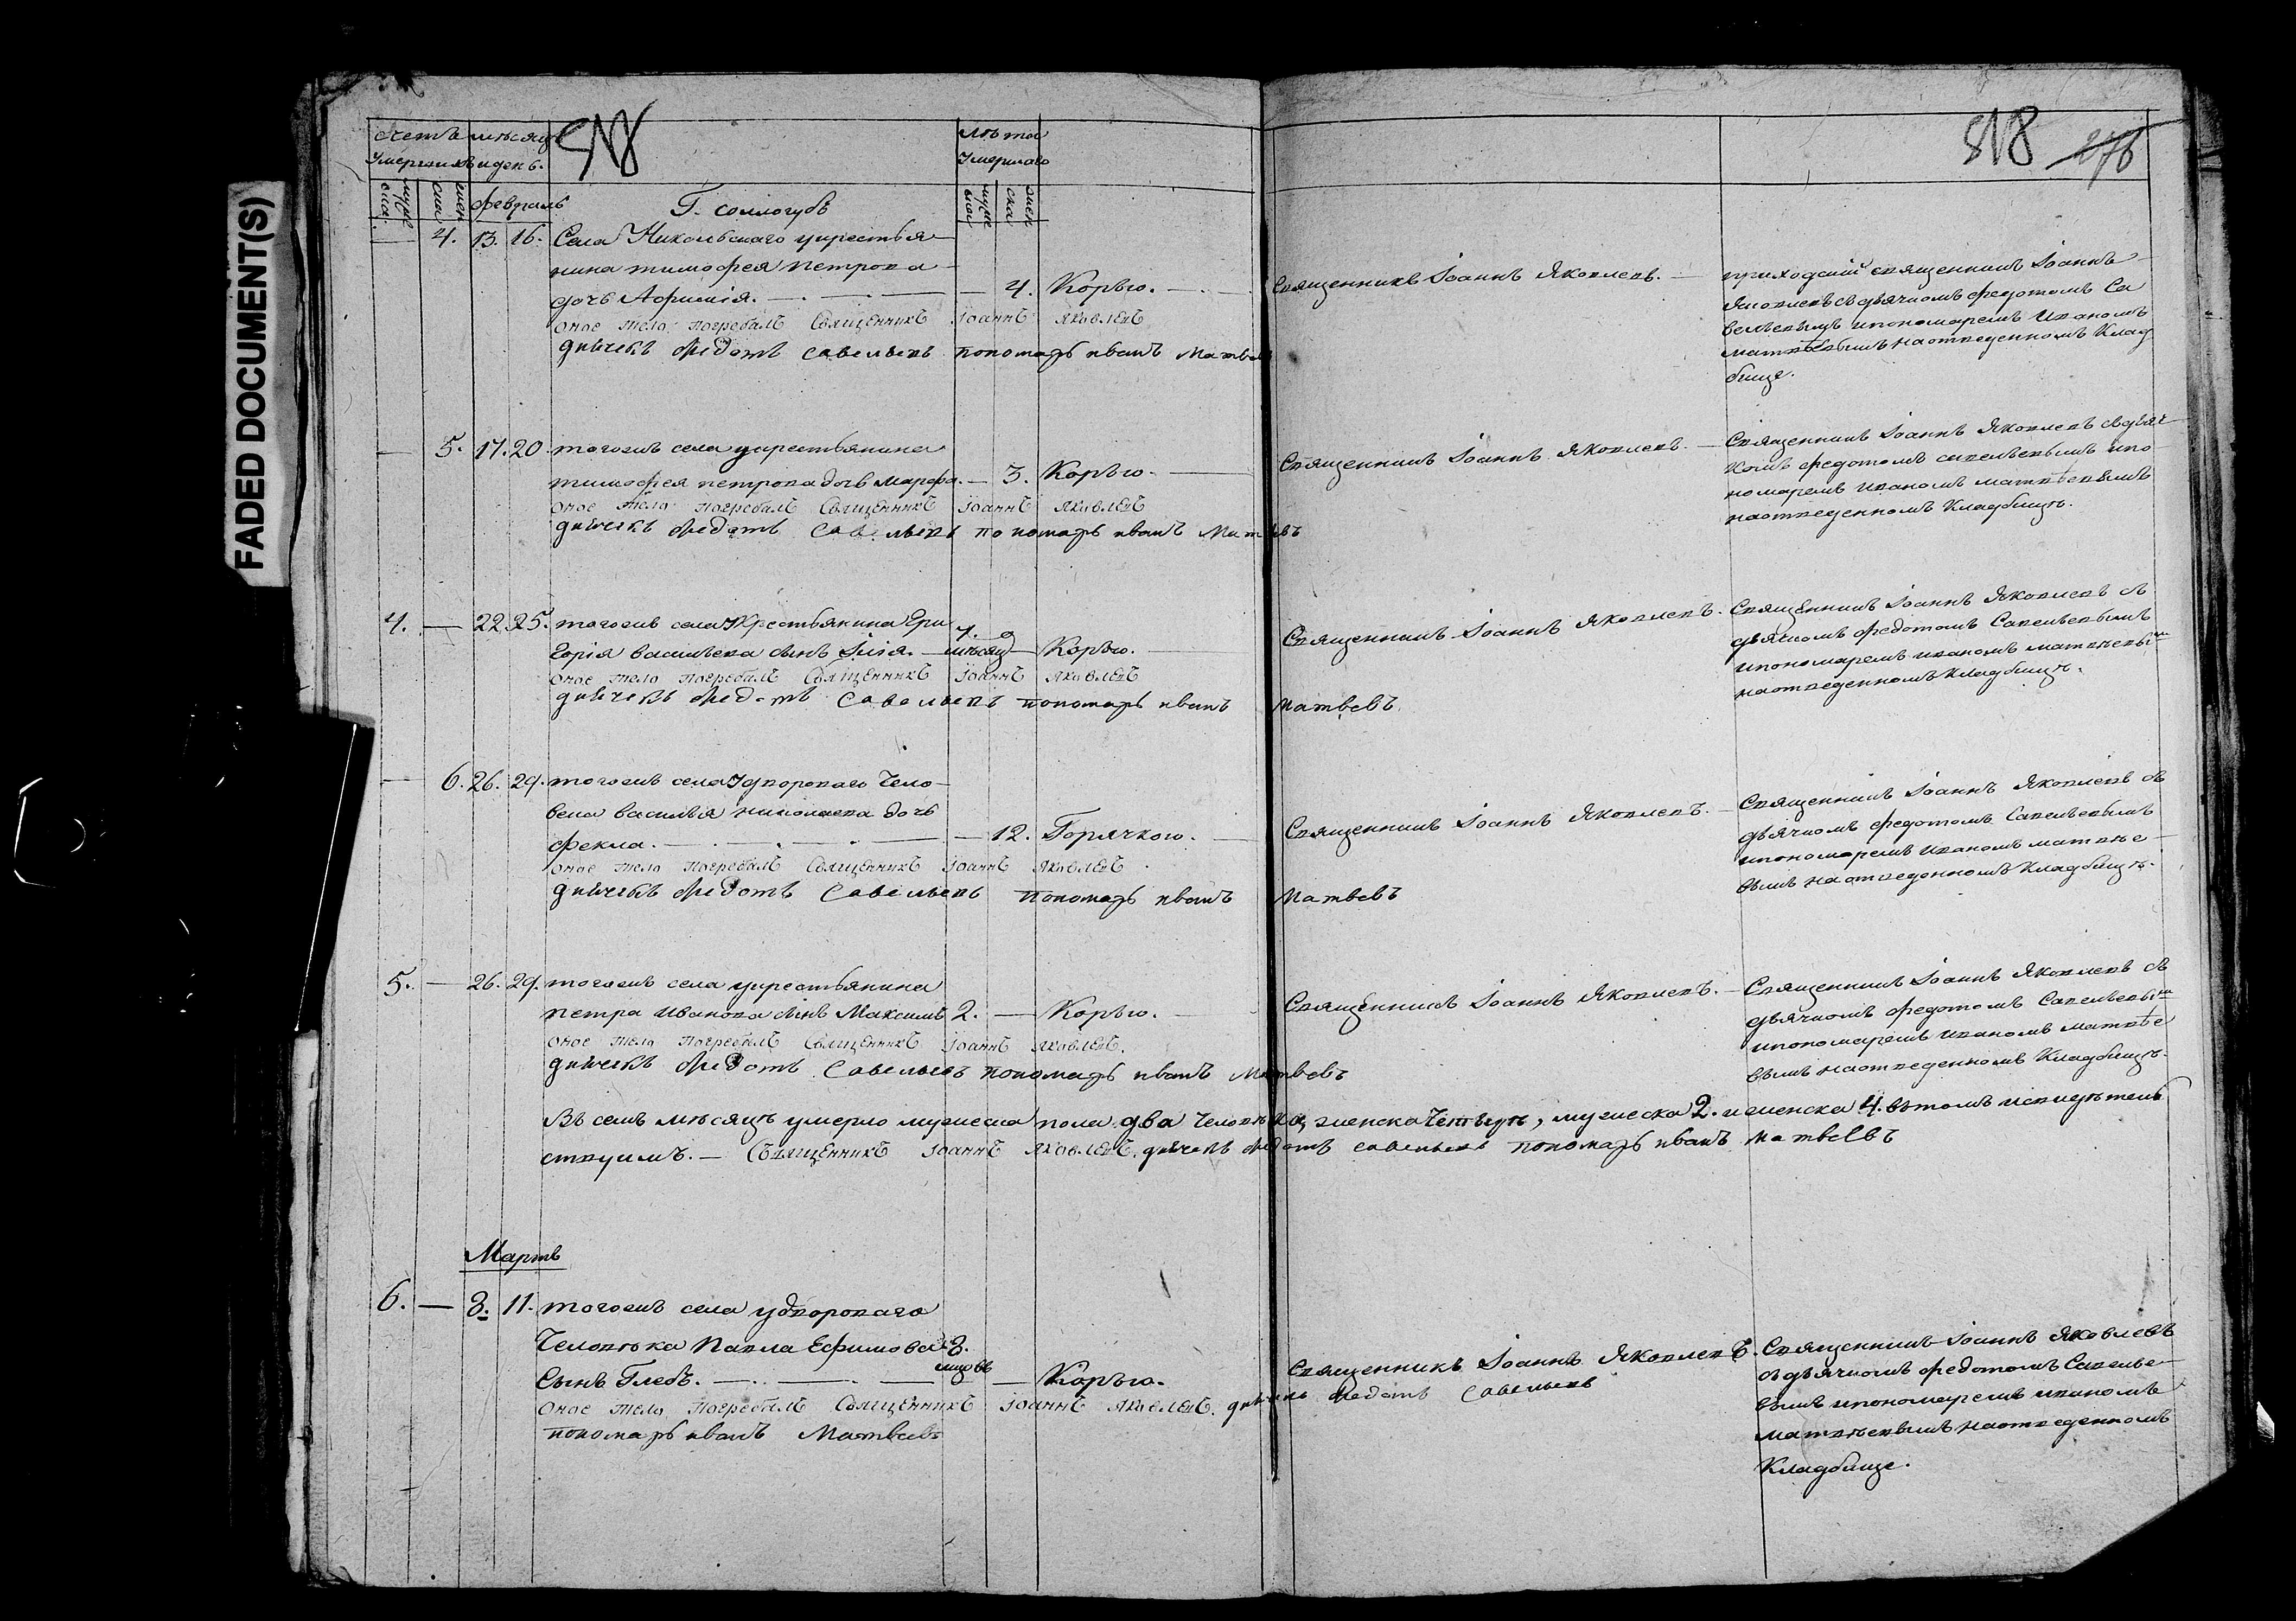 FADED DOCUMENT(S)
518
518 276
Счетъ умершихъ
месяцъ и день.
Лѣта умершаго
мужеска
женска
февраль
мужеска
женска
Г. соллогубъ
4. 13. 16. Села Никольскаго укрестья
нина тимофея петрова
дочь Афимія. 4. Корью. Священникъ Іоаннъ Яковлевъ.
приходскій священникъ Іоаннъ
Яковлевъ съ дьячкомъ федотомъ Са
вельевымъ ипономаремъ иваномъ
матвѣевымъ наотведенномъ Клад
бище.
оное тело погребалъ Священникъ Іоаннъ яковлевъ
дьячекъ Федотъ савельевъ пономарь иванъ Матвевъ
5. 17. 20. тогожъ села укрестьянина
тимофея петрова дочь марфа. 3. Корью. Священникъ Іоаннъ Яковлевъ.
Священникъ Іоаннъ Яковлевъ съ дьяч
комъ федотомъ савельевымъ ипо
номаремъ иваномъ матвѣевымъ
наотведенномъ Кладбищѣ.
оное тело погребалъ Священникъ Іоаннъ яковлевъ
дьячекъ Федотъ Савельевъ пономарь иванъ Матвевъ
4. 22. 25. тогожъ села укрестьянина Гри
горія васильева сынъ Ілія. месяц Корью. Священникъ Іоаннъ Яковлевъ.
Священникъ Іоаннъ Яковлевъ съ
дьячкомъ федотомъ Савельевымъ
ипономаремъ иваномъ матвѣевымъ
наотведенномъ Кладбищѣ.
оное тело погребалъ Священникъ Іоаннъ яковлевъ
дьячекъ Федотъ Савельевъ пономарь иванъ Матвевъ
6. 26. 29. тогожъ села удвороваго Чело
века василья николаева дочь
фекла. 12. Горячкою. Священникъ Іоаннъ Яковлевъ.
Священникъ Іоаннъ Яковлевъ съ
дьячкомъ федотомъ Савельевымъ
ипономаремъ иваномъ матвѣе
вымъ наотведенномъ Кладбищѣ.
оное тело погребалъ Священникъ Іоаннъ яковлевъ
дьячекъ Федотъ Савельевъ пономарь иванъ Матвевъ
5. 26. 29. тогожъ села укрестьянина
петра Иванова сынъ Максимъ 2. Корью. Священникъ Іоаннъ Яковлевъ.
Священникъ Іоаннъ Яковлевъ съ
дьячкомъ федотомъ Савельевымъ
ипономаремъ иваномъ матвѣе
вымъ наотведенномъ Кладбищѣ.
оное тело погребалъ Священникъ Іоаннъ яковлевъ.
дьячекъ Федотъ Савельевъ пономарь иванъ Матвевъ
Въ семъ мѣсяцѣ умерло мужеска пола два Человѣка, женска Четыре, мужеска 2. и женска 4. вътомъ исвидѣтель
ствуимъ. Священникъ Іоаннъ Яковлевъ. дьячекъ Федотъ савельевъ пономарь иванъ матвевъ
Мартъ
6. 8. 11. тогожъ села удвороваго
Человѣка Павла Ефимова 8.
Сынъ Глебъ. Корью. Священникъ Іоаннъ Яковлевъ.
Священникъ Іоаннъ Яковлевъ
съ дьячкомъ федотомъ Савелье
вымъ ипономаремъ иваномъ
матвѣевымъ наотведенномъ
Кладбище.
Оное тело погребалъ Священникъ Іоаннъ яковлевъ. дьячекъ Федотъ Савельевъ
пономарь иванъ Матвевъ